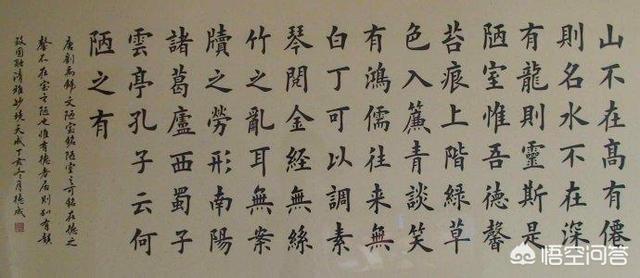 山不在高有僊
則名水不在深
有龍則靈斯是
陋室惟吾德馨
苔痕上階綠草
色入簾青談笑
有鴻儒往来無
白丁可以調素
琴閱金經無絲
竹之亂耳無案
牘之勞形南陽
諸葛廬西蜀子
雲亭孔子云何
陋之有
唐劉禹錫文陋室銘陋室之可銘在德之
馨不在室之陋也惟有德者居則別有韻
致因融清雅妙境天成丁亥月德成
悟空问答